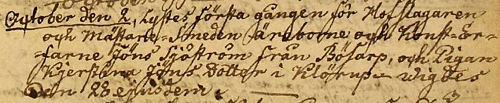 October den 2, Lystes första gången för Hofslagaren
och Mästare-Smeden Äreborne och Konst-er-
farne Jöns Sjöström från Bösarp, och Pigan
Kjerstina Jöns Dotter i Klörup - wigdes
den 28 ejusdem.